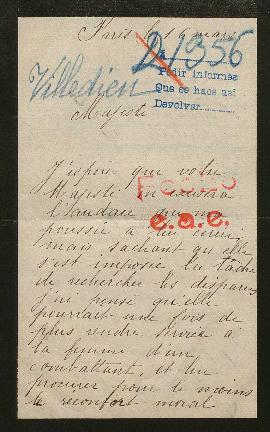 Paris le 16 mars
21356
Villedieu
Pedir informes
Que se hace asi
Devolver.
Majesté
J'espère que votre
Majesté m'excusera
l'audace qui m'a
poussée à lui écrire
mais sachant qu'elle
s'est imposée la tâche
de rechercher les disparus
j'ai pensé qu'elle
pourrait une fois de
plus rendre service à
la femme d'un
combattant, et lui
procurer pour le moins
le reconfort moral
e.a.e.